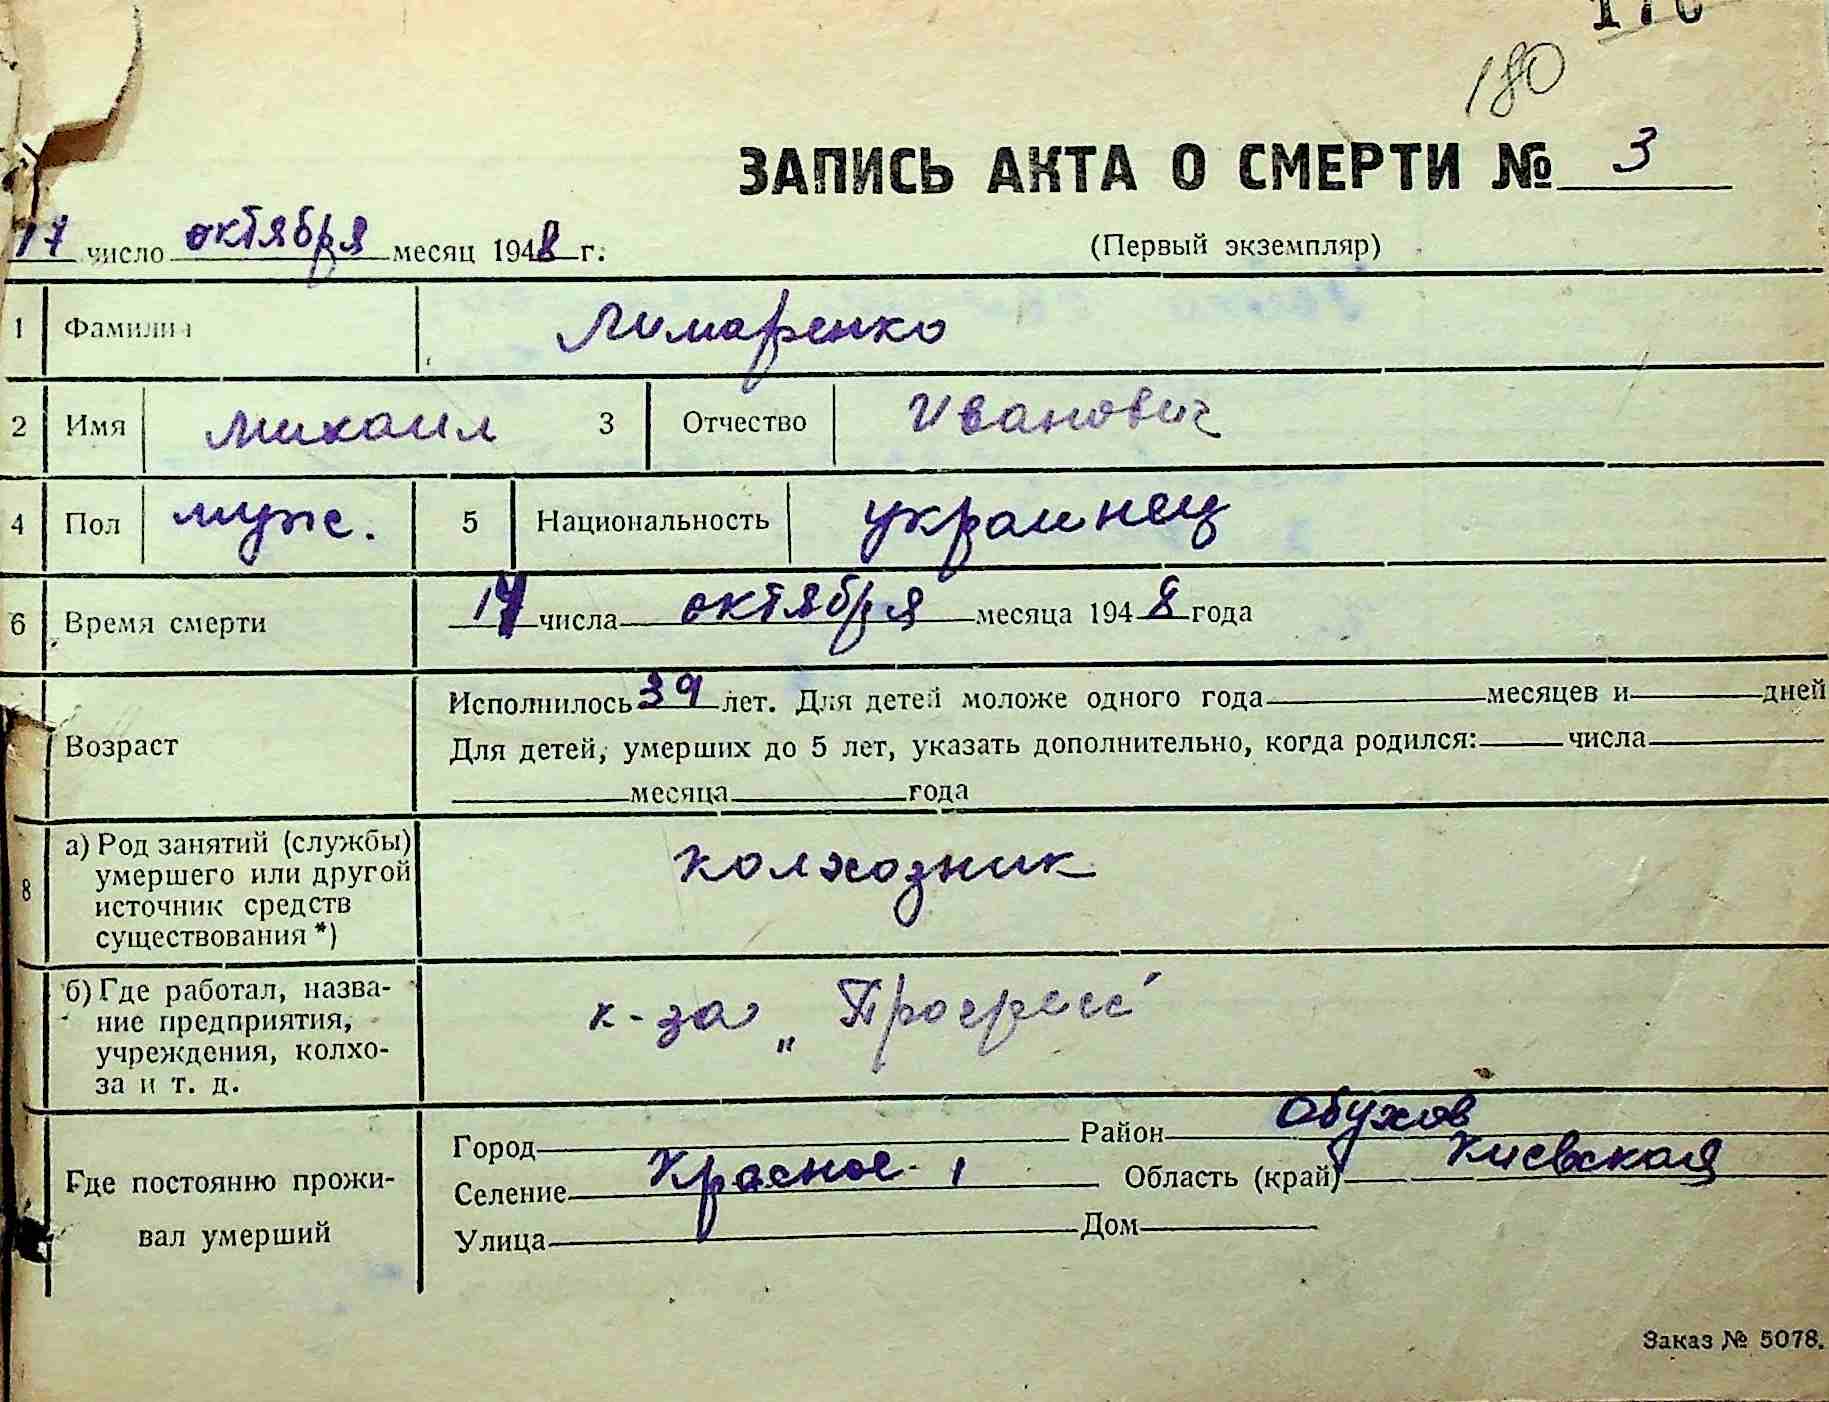 180
ЗАПИСЬ АКТА О СМЕРТИ № 3
17 число октября месяц 1948 г.
(Первый экземпляр)
1 Фамилия Лимаренко
2 Имя Михаил 3 Отчество Иванович
4 Пол муж. 5 Национальность украинец
6 Время смерти числа октября месяца 1948 года
Возраст
Исполнилось 39 лет. Для детей моложе одного года месяцев и дней
Для детей, умерших до 5 лет, указать дополнительно, когда родился: числа
месяца года
8 а) Род занятий (службы)
умершего или другой
источник средств
существования *)
колхозник
б) Где работал, назва-
ние предприятия,
учреждения, колхо-
за и т. д.
к-за „Прогресс"
Где постоянно прожи-
вал умерший
Город Район Обухов
Селение Красное-1 Область (край) Киевская
Улица Дом
Заказ № 5078.